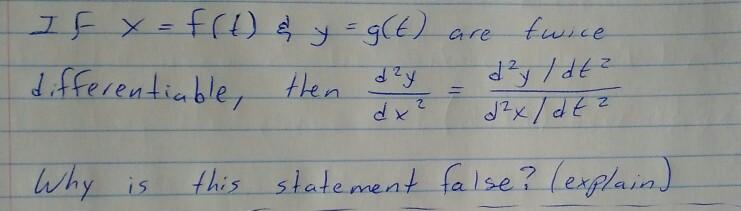 If x = f(t) & y = g(t) are twice
differentiable, then d²y/dx² = (d²y/dt²)/(d²x/dt²)
Why is this statement false? (explain)